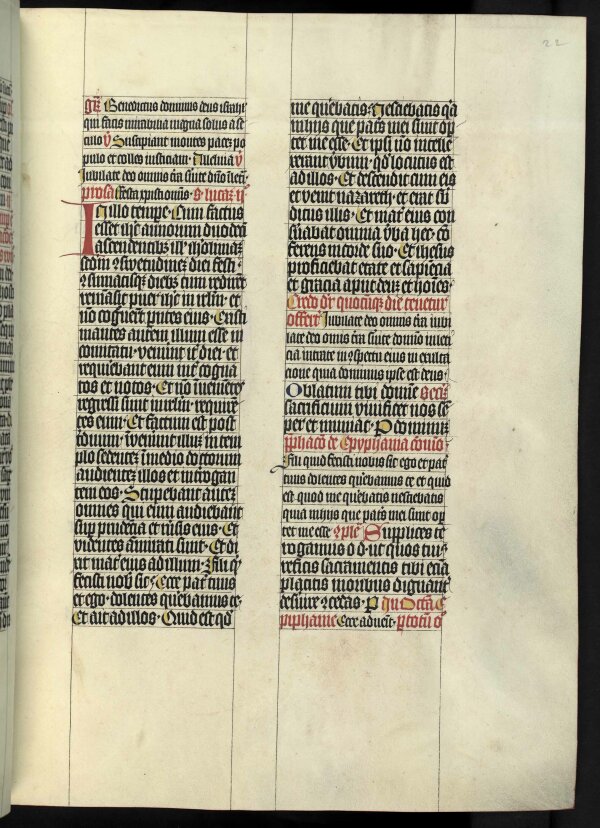 22
Gr̄. Benedictus dominus deus israhel
qui facis mirabilia magna solus a se
culo v̄ Suscipiant montes pacē po
pulo et colles iusticiam. Alleluia v̄
Iubilate deo omnis t̄ra s̄uite dn̄o ī leti
prosa Festa xpisti omnis. S. lucaȝ ii
In illo tempe. Cum factus
esset ihc annorum duodeci
ascendentibus ill' iherosolimaȝ
sedm ↊suetudineȝ diei festi.
↊sūmatisqȝ diebus cum redirēt
remansit puer ihc in irlm. et
nō cognoueit parentes eius. Existi
mantes autem illum esse in
comitatu. venerunt iter diei. et
requirebant eum int' cogna
tos et notos. Et nō inuenietes
regressi sunt irlm. requirē
tes eum. Et factum est post
triduum. īuenerunt illuȝ in tem
plo sedenteȝ ī medio doctorum
audienteȝ illos et int'rogan
tem eos. Stupebant auteȝ
omnes qui eum audiebant
sup prudēcia et rn̄sis eius. Et
videntes āmirati sunt. Et di
xit mat' eius ad illum. Fili qd
fecisti nob' sic. Ecce pat' tuus
et ego. dolentes querebamus te.
Et ait ad illos. Quid est qd'
me querebatis. Nesciebatis qa
in hijs que pats mei sunt opor
tet me esse. Et ipsi nō intelle
xerunt v̄bum. qd' locutus est
ad illos. Et descendit cum eis
et venit nazareth. et erat sub
ditus illis. Et mat' eius con
s̄uabat omnia v̄ba hec. cō
ferens in corde suo. Et ihesus
proficiebat etate et sapiēcia
et gracia aput deuȝ et hoīes.
Credo dr̄ quociēsqȝ die tenetur
offert' Iubilate deo omnis t̄ra iubi
late deo omnis t̄ra s̄uite domino in leti
cia intrate in ↊spectu eius in exulta
cione quia dominus ipse est deus.
Oblatum tibi domīe Secr'
sacrificium viuificet nos se
per et muniat. P dominuȝ
Prefacō de Epyphania cōmō
Fili quid fecisti nobis sic ego et pat'
tuus dolentes querebamus te et quid
est quod me querebatis nesciebatis
quia in hijs que pats mei sunt opor
tet me esse ↊ple Supplices te
rogamus o. d. ut quos tuis
reficis sacramentis tibi eciā
placitis moribus dignant'
des̄uire ↊cedas. P In Octa E
piphanie Ecce aduēit. p totū o